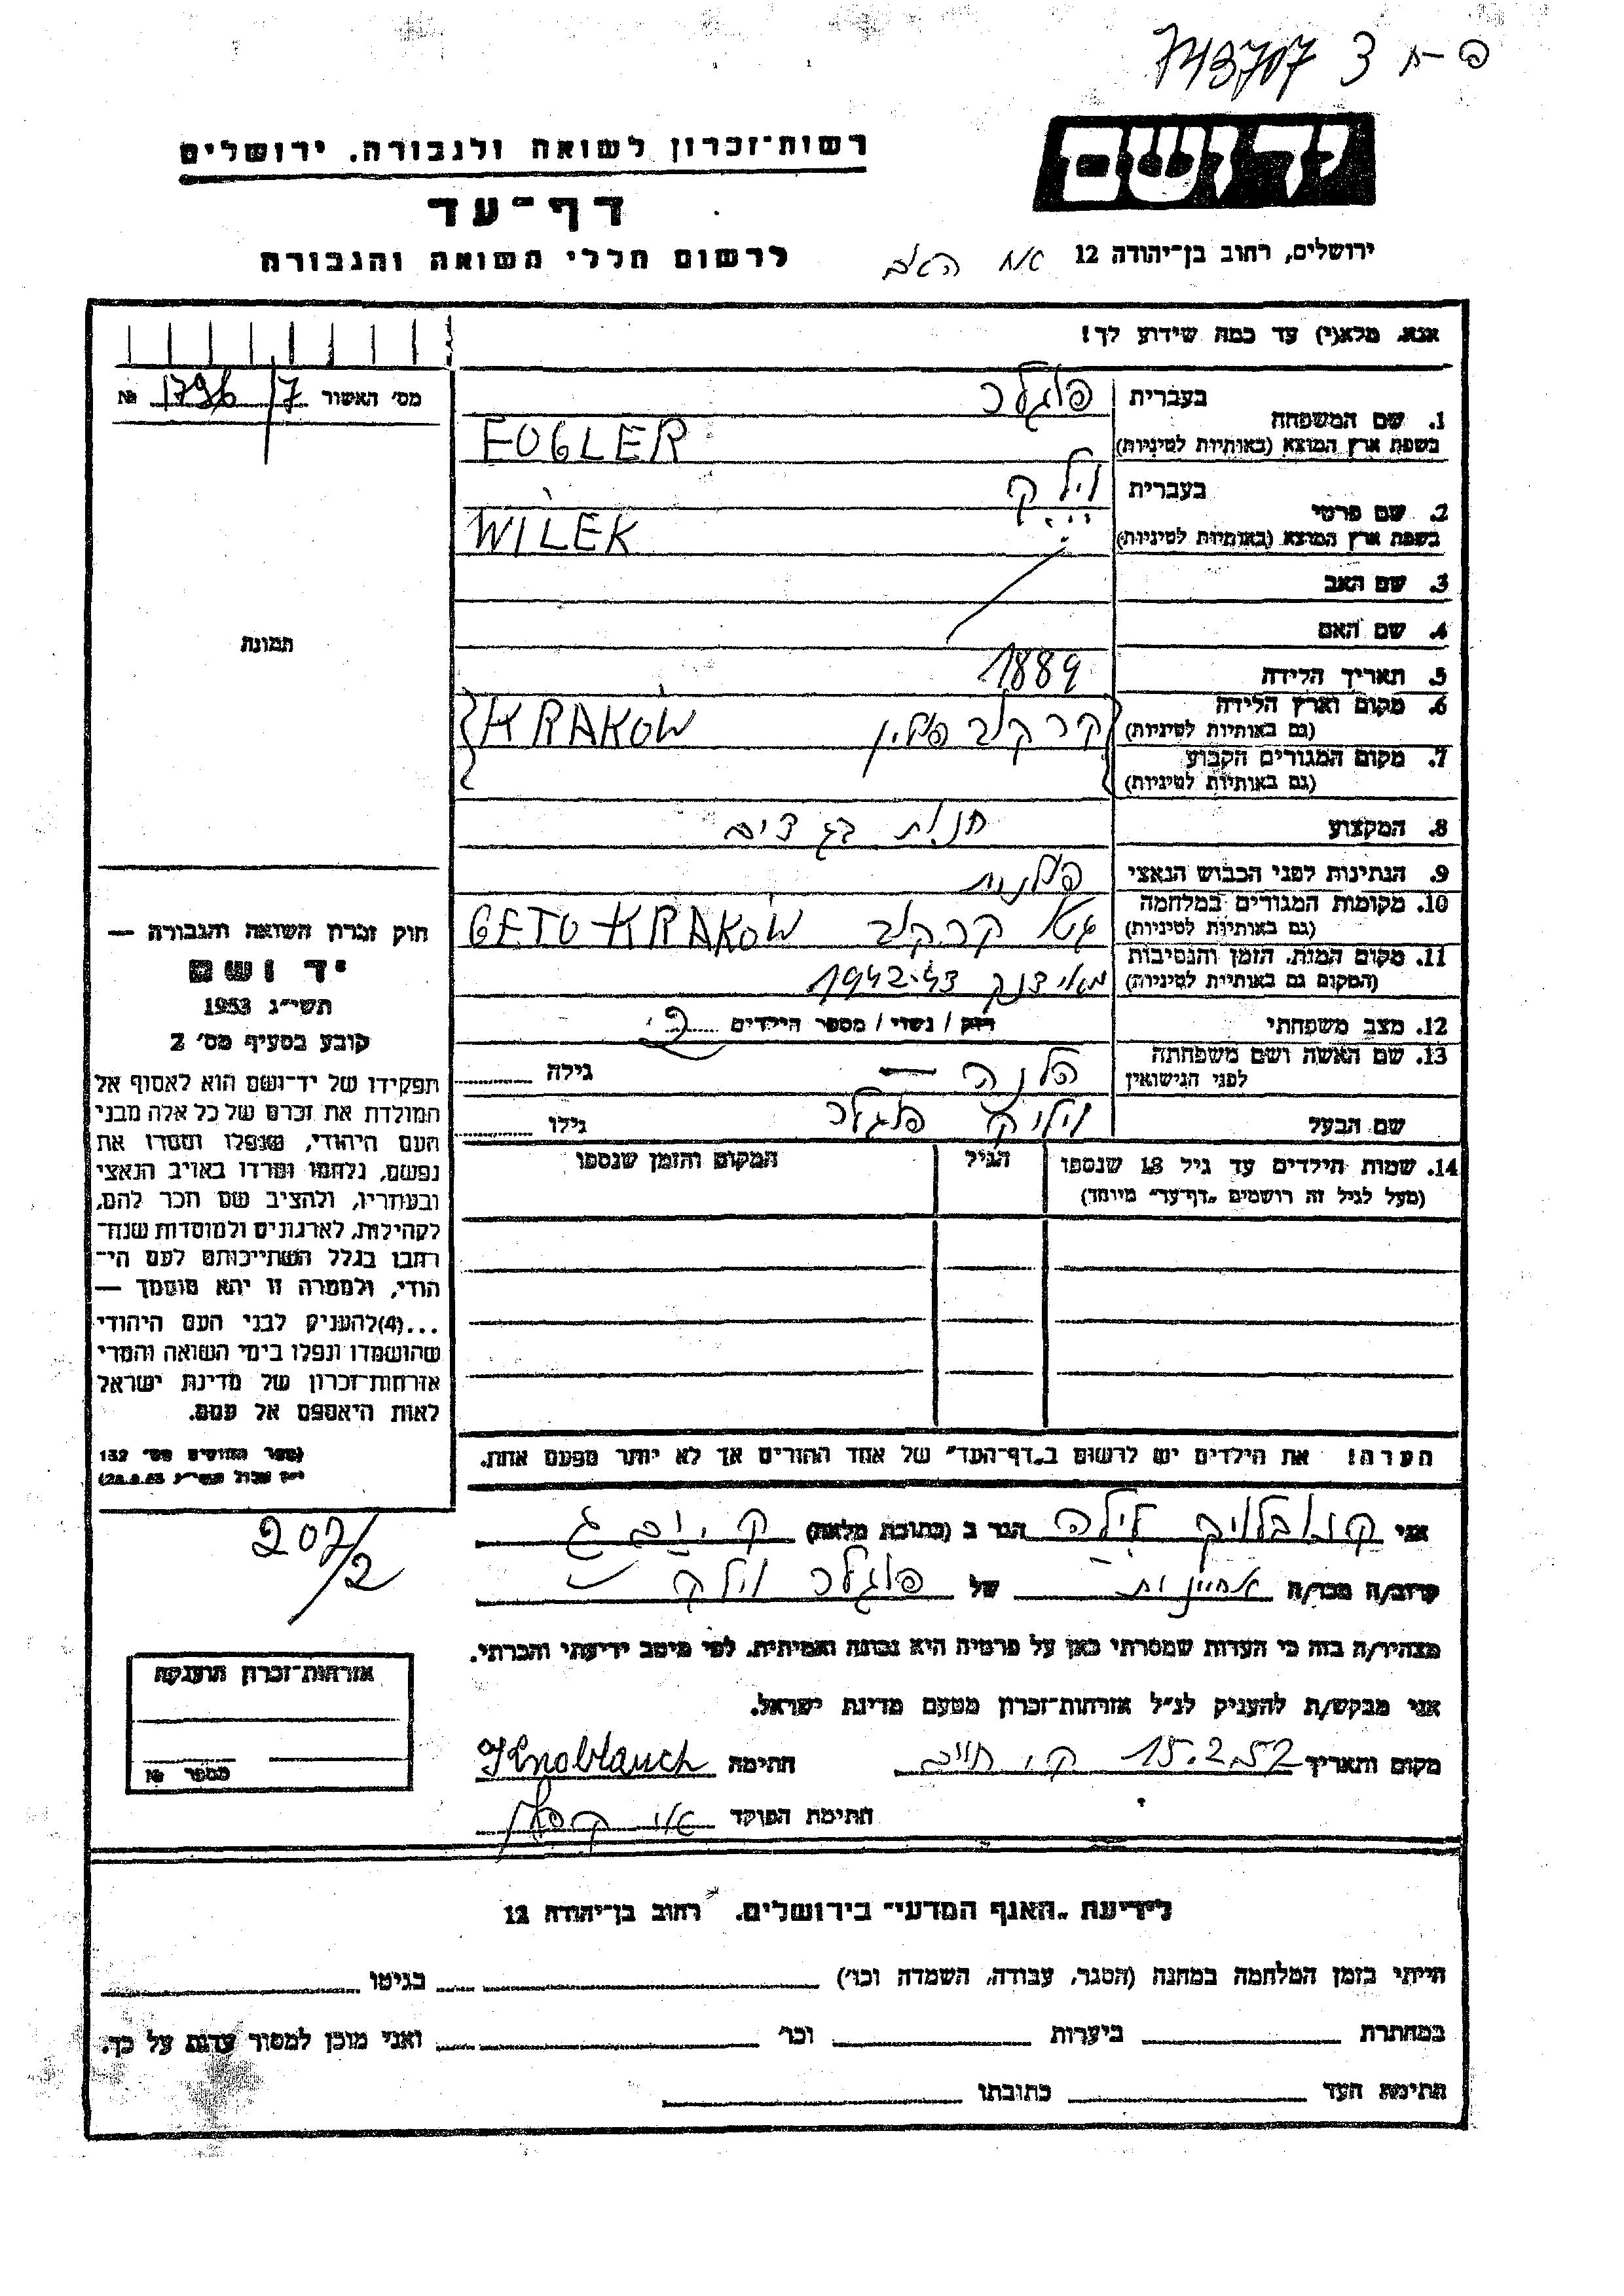 743707 3 פ-ח
רשות-זכרון לשואה ולגבורה. ירושלים
יד ושם
דף-עד
ירושלים, רחוב בן-יהודה 12
לרשום חללי השואה והגבורה
אנא, מלא(י) עד כמה שידוע לך!
מס' האשור 1796/7 №
1. שם המשפחה
בעברית פוגלר
בשפת ארץ המוצא (באותיות לטיניות) FOGLER
2. שם פרטי
בעברית וילק
בשפת ארץ המוצא (באותיות לטיניות) WILEK
3. שם האב
4. שם האם
תמונה
5. תאריך הלידה 1889
6. מקום וארץ הלידה (גם באותיות לטיניות) קרקוב פולין KRAKÓW
7. מקום המגורים הקבוע (גם באותיות לטיניות)
8. המקצוע חנות בגדים
9. הנתינות לפני הכבוש הנאצי פולנית
10. מקומות המגורים במלחמה (גם באותיות לטיניות) גטו קרקוב GETO KRAKÓW
11. מקום המות, הזמן והנסיבות (המקום גם באותיות לטיניות) מאידנק 1942-43
12. מצב משפחתי רוק / נשוי / מספר הילדים
13. שם האשה ושם משפחתה לפני הנישואין הלנה — גילה
שם הבעל פוגלר גילו
14. שמות הילדים עד גיל 18 שנספו (מעל לגיל זה רושמים „דף-עד” מיוחד)
הגיל
המקום והזמן שנספו
חוק זכרון השואה והגבורה —
יד ושם
תשי"ג 1953
קובע בסעיף מס' 2
תפקידו של יד-ושם הוא לאסוף אל
המולדת את זכרם של כל אלה מבני
העם היהודי, שנפלו ומסרו את
נפשם, נלחמו ומרדו באויב הנאצי
ובעוזריו, ולהציב שם וזכר להם,
לקהילות, לארגונים ולמוסדות שנח-
רבו בגלל השתייכותם לעם הי-
הודי, ולמטרה זו יהא מוסמך —
...(4)להעניק לבני העם היהודי
שהושמדו ונפלו בימי השואה והמרי
אזרחות-זכרון של מדינת ישראל
לאות היאספם אל עמם.
(ספר החוקים מס' 132
הערה! את הילדים יש לרשום ב„דף-העד” של אחד ההורים אך לא יותר מפעם אחת.
207/2
אני הגר ב (כתובת מלאה)
קרוב/ה מכר/ה של פוגלר וילק
מצהיר/ה בזה כי העדות שמסרתי כאן על פרטיה היא נכונה ואמיתית, לפי מיטב ידיעתי והכרתי.
אני מבקש/ת להעניק לנ"ל אזרחות-זכרון מטעם מדינת ישראל.
מקום ותאריך 15.2.57 חתימה Knoblauch
חתימת הפוקד
אזרחות-זכרון הוענקה
מספר №
לידיעת „האגף המדעי” בירושלים. רחוב בן-יהודה 12
הייתי בזמן המלחמה במחנה (הסגר, עבודה, השמדה וכו') בגיטו
במחתרת ביערות וכו' ואני מוכן למסור עדות על כך.
חתימת העד כתובתו